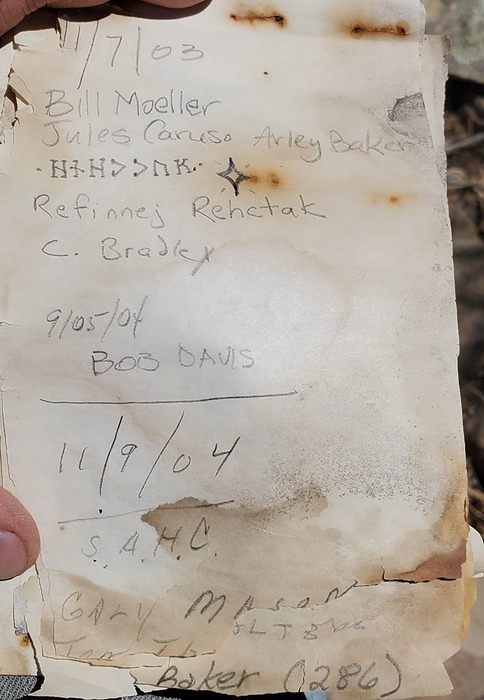 11/7/03
Bill Moeller
Jules Caruso Arley Baker
Refinnej Rehctak
C. Bradley
9/05/04
BOB DAVIS
11/9/04
S.A.H.C.
GALY MASON
Baker (286)